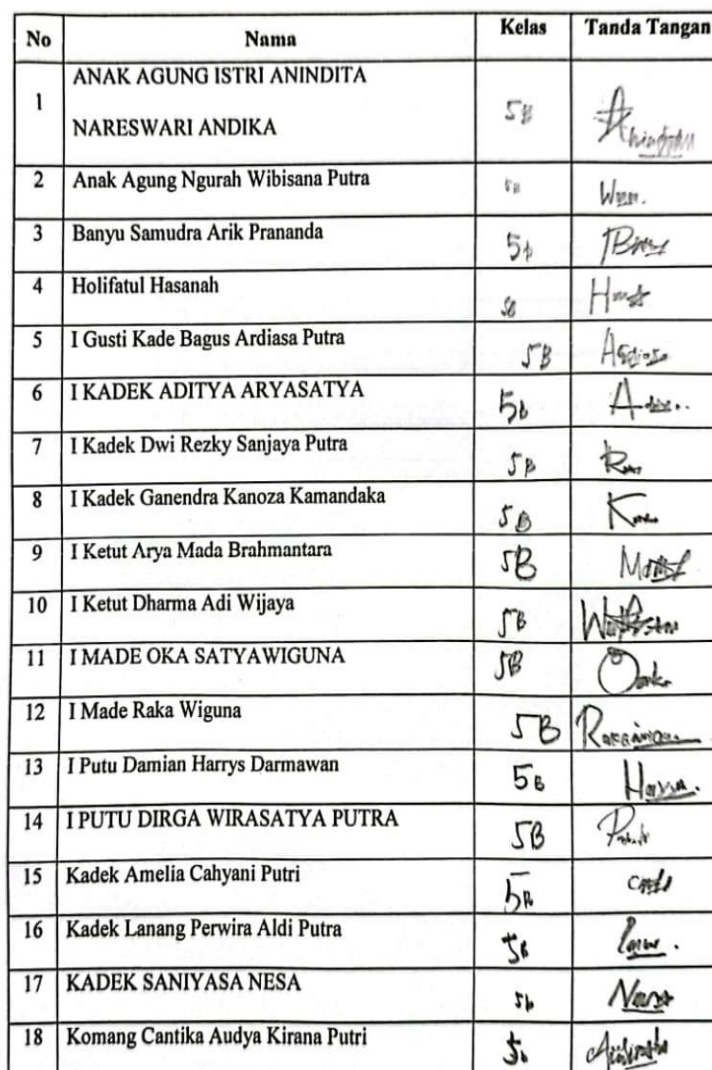 No Nama Kelas Tanda Tangan
1 ANAK AGUNG ISTRI ANINDITA
NARESWARI ANDIKA 5B
2 Anak Agung Ngurah Wibisana Putra 5B
3 Banyu Samudra Arik Prananda 5b
4 Holifatul Hasanah 5B
5 I Gusti Kade Bagus Ardiasa Putra 5B
6 I KADEK ADITYA ARYASATYA 5b
7 I Kadek Dwi Rezky Sanjaya Putra 5B
8 I Kadek Ganendra Kanoza Kamandaka 5B
9 I Ketut Arya Mada Brahmantara 5B
10 I Ketut Dharma Adi Wijaya 5B
11 I MADE OKA SATYAWIGUNA 5B
12 I Made Raka Wiguna 5B
13 I Putu Damian Harrys Darmawan 5B
14 I PUTU DIRGA WIRASATYA PUTRA 5B
15 Kadek Amelia Cahyani Putri 5B
16 Kadek Lanang Perwira Aldi Putra 5B
17 KADEK SANIYASA NESA 5b
18 Komang Cantika Audya Kirana Putri 5b